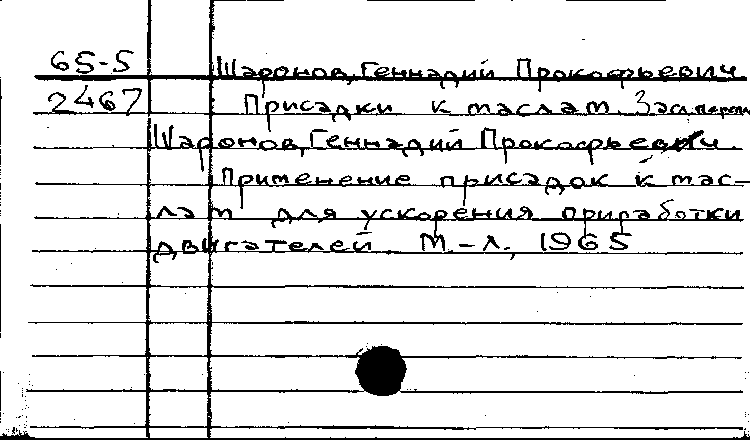 65-5 Шаронов, Геннадий Прокофьевич
2467 Присадки к маслам.
Шаронов, Геннадий Прокофьевич.
Применение присадок к мас-
лам для ускорения приработки
двигателей. М.-Л., 1965